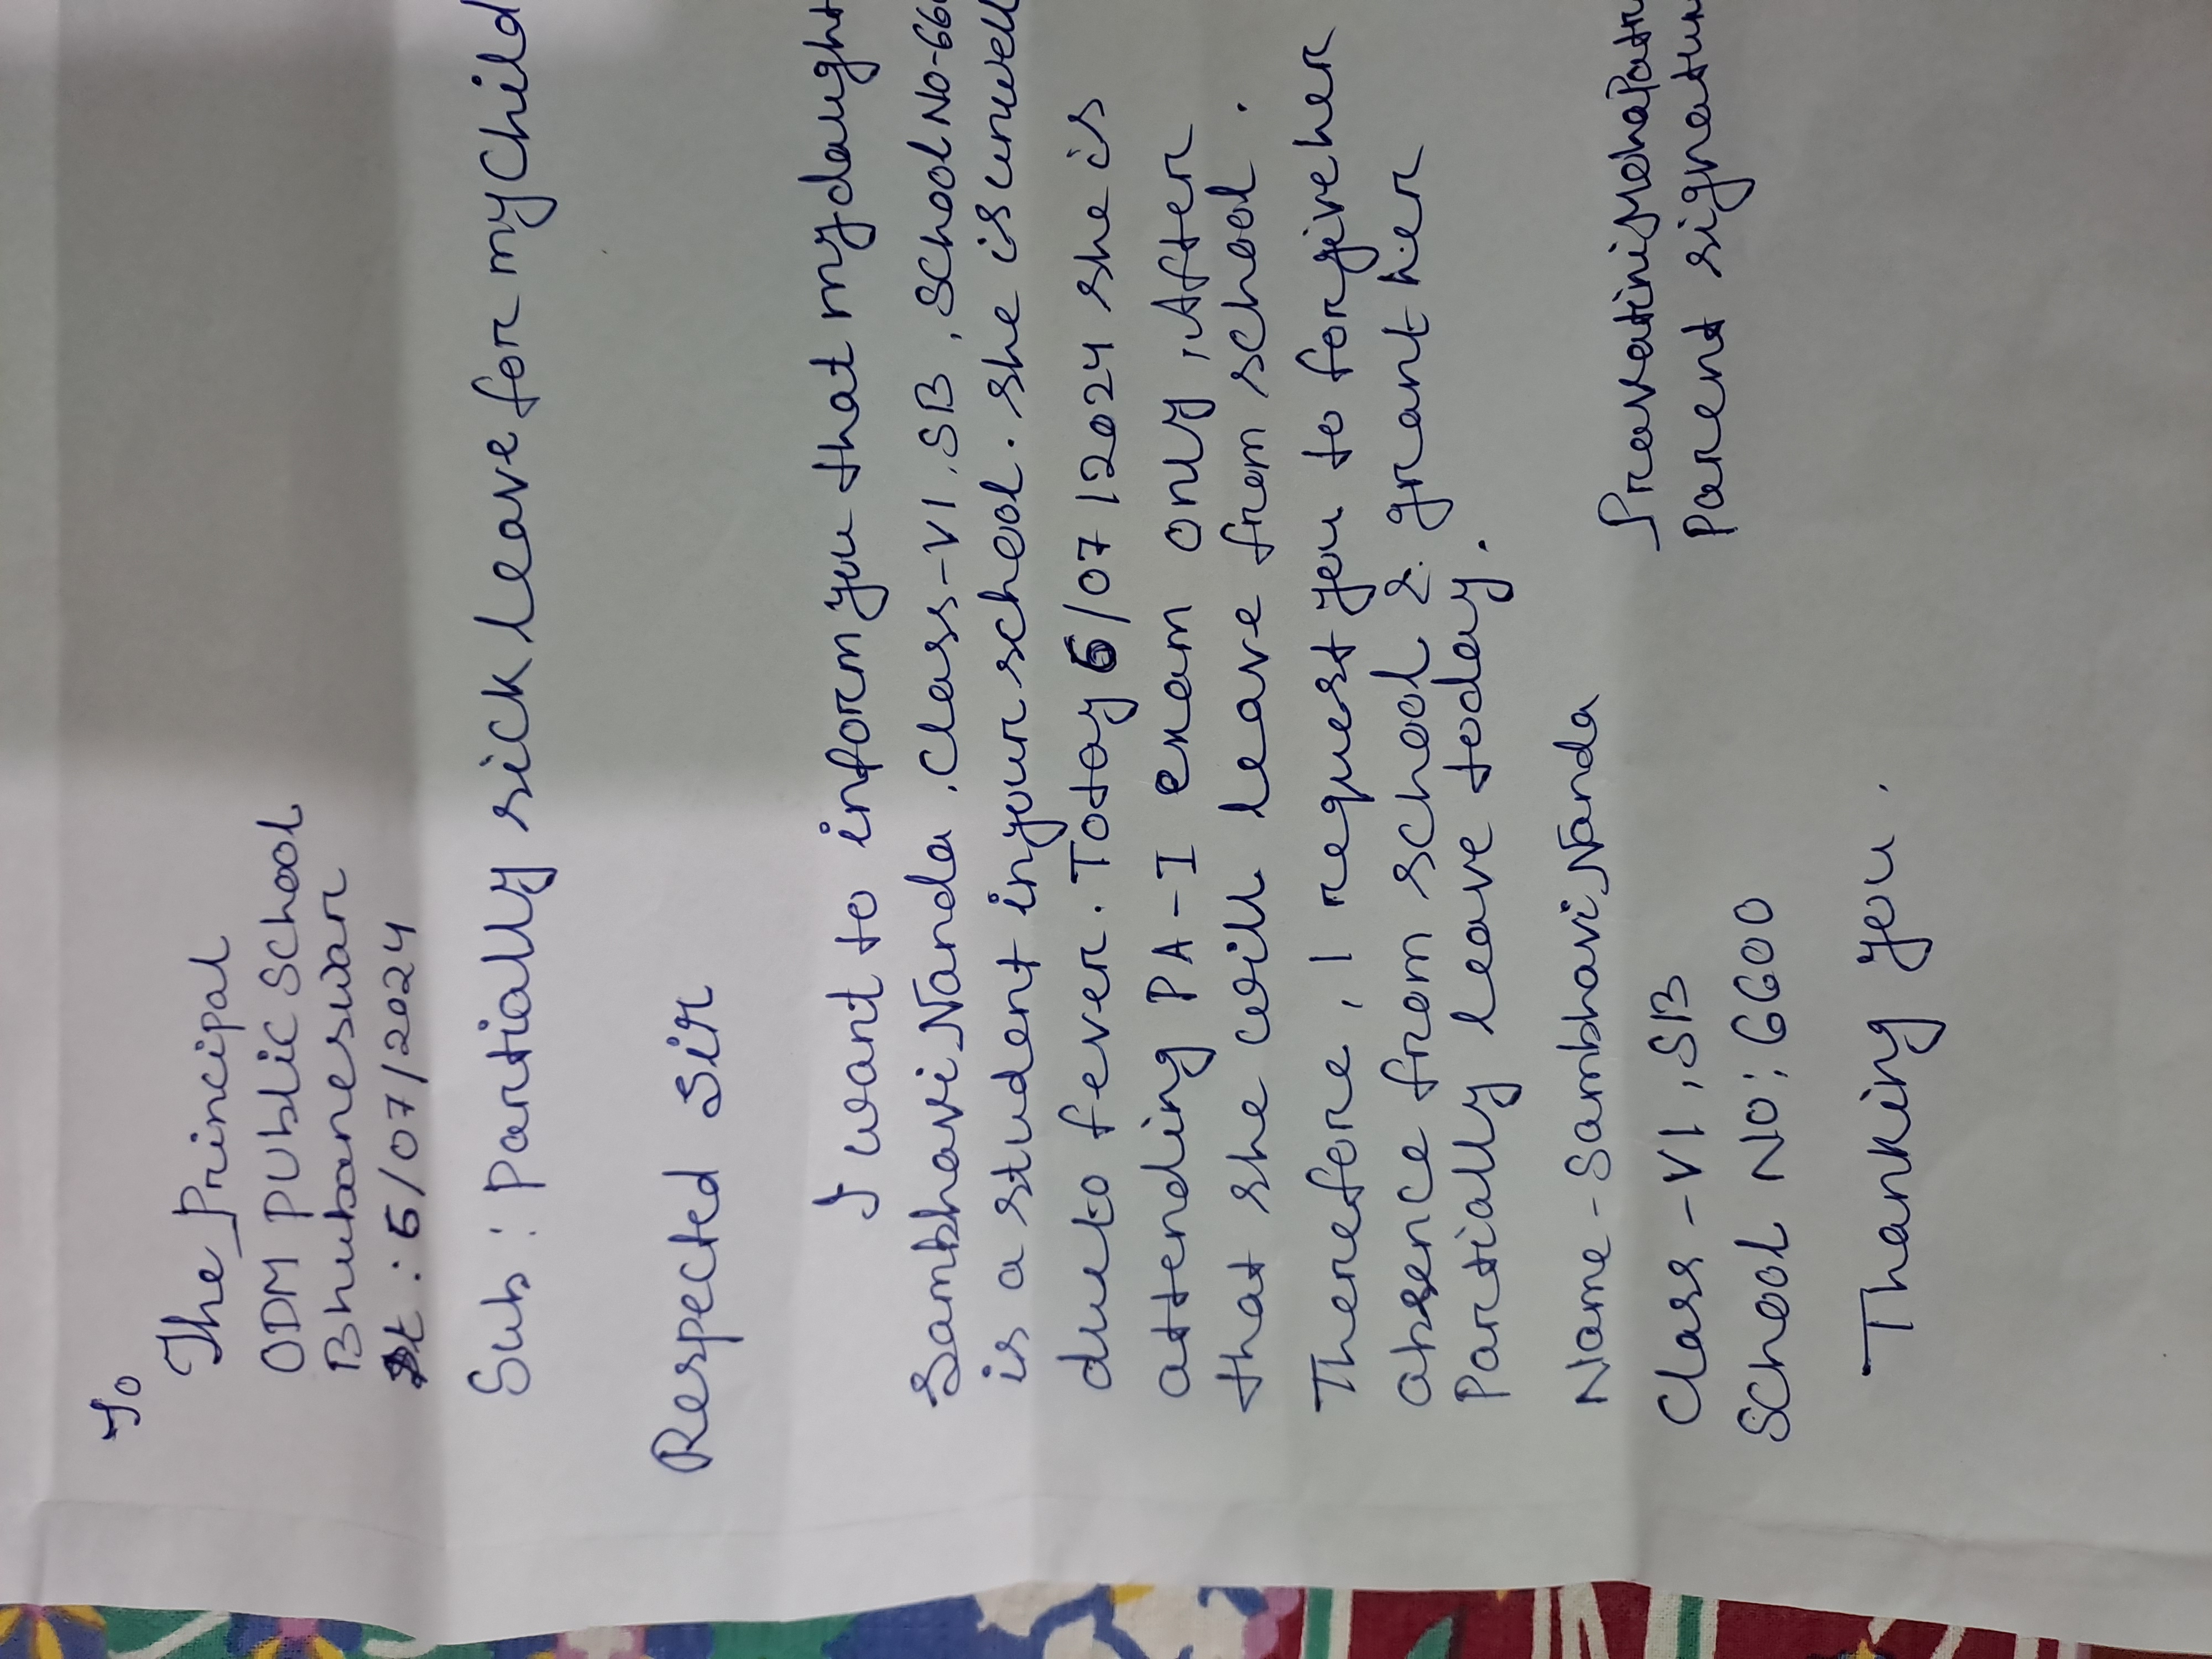 To
The Principal
ODM Public School
Bhubaneswar
Dt : 5/07/2024
Sub : Partially sick leave for my Child
Respected Sir
I want to inform you that my daught
Sambhavi Nanda, Class-VI, SB, School No-660
is a student in your school. She is unwell
due to fever. Today 5/07/2024 she is
attending PA-I exam only, After
that she will leave from school.
Therefore, I request you to forgive her
absence from school & grant her
Partially leave today.
Name - Sambhavi Nanda
Pravatini Mohapatr
Class - VI, SB
Parent signatur
School No: 6600
Thanking you.